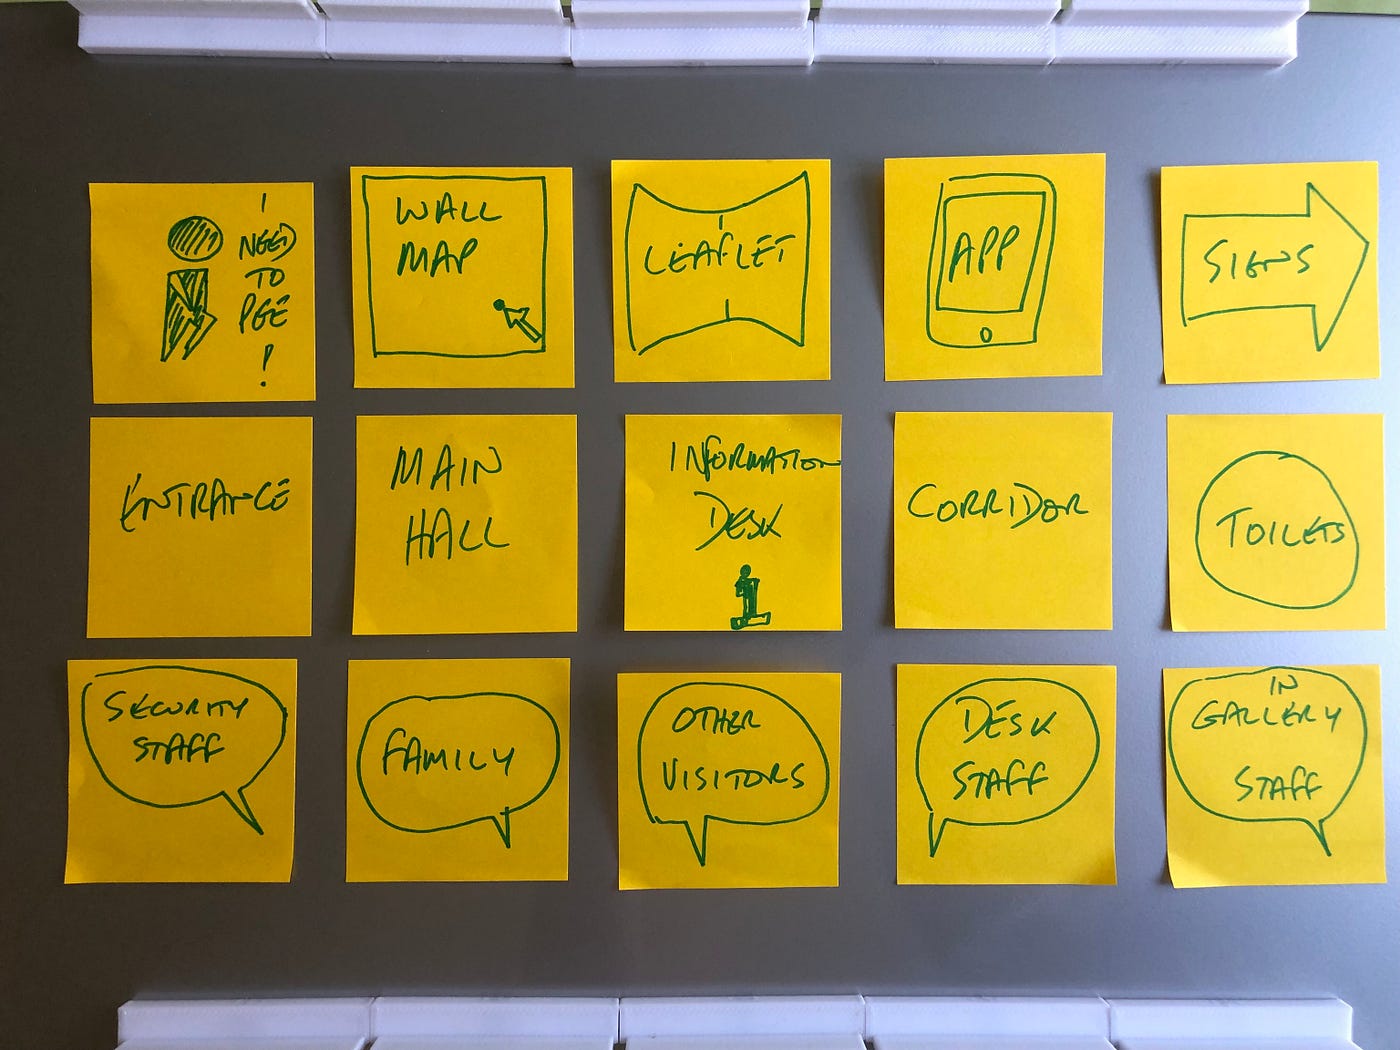 I
NEED
TO
PEE
!
WALL
MAP
LEAFLET
APP
SIGNS
ENTRANCE
MAIN
HALL
INFORMATION
DESK
i
CORRIDOR
TOILETS
SECURITY
STAFF
FAMILY
OTHER
VISITORS
DESK
STAFF
IN
GALLERY
STAFF